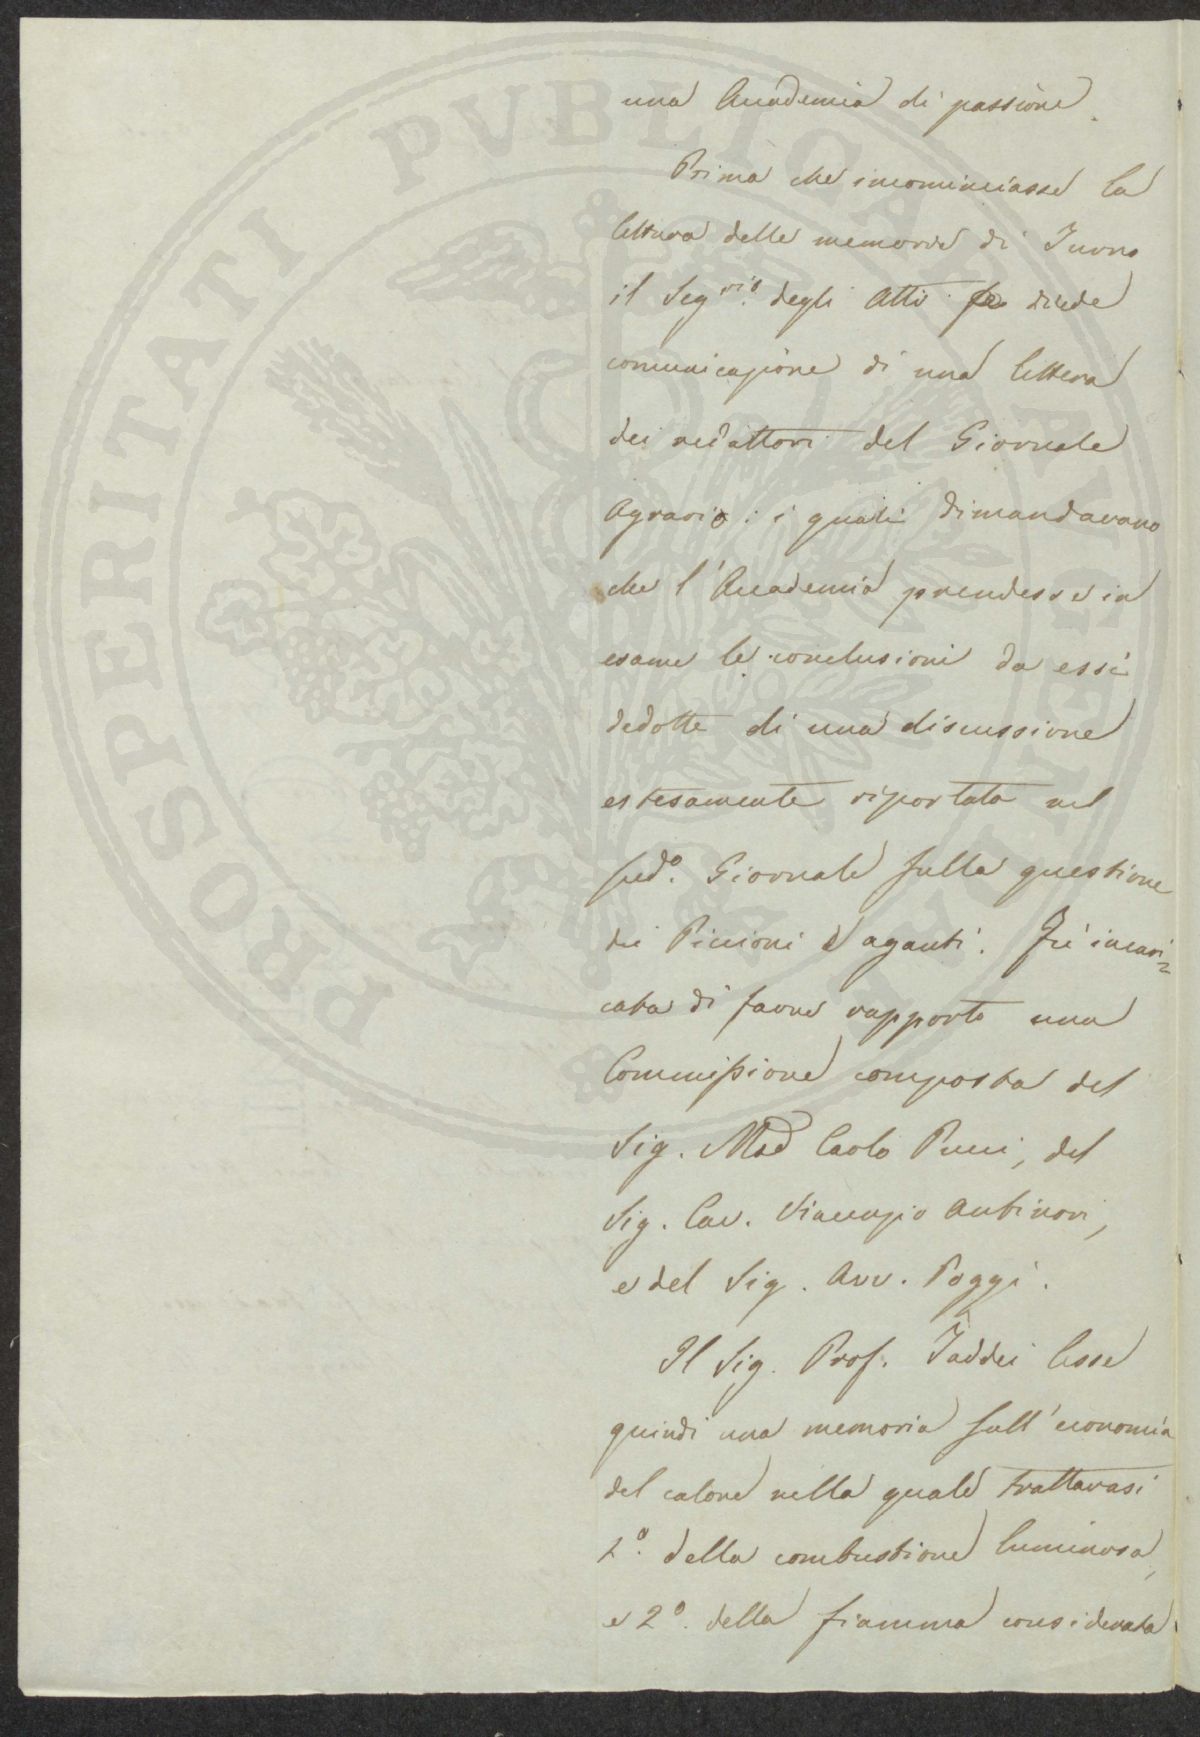 una Accademia di passione.
Prima che incominciasse la
lettura delle memorie di Turno
il Seg.rio degli Atti diede
comunicazione di una lettera
dei redattori del Giornale
Agrario: i quali dimandavano
che l'Accademia prendesse in
esame le conclusioni da essi
dedotte di una discussione
estesamente riportata nel
sud.o Giornale sulla questione
dei Piccioni vaganti. Fù incari=
cata di farne rapporto una
Commissione composta del
Sig. Carlo Pucci, del
Sig. Cav. Vincenzio Antinori,
e del Sig. Avv. Poggi.
Il Sig. Prof. Taddei lesse
quindi una memoria sull'economia
del calore nella quale trattavasi
1.o della combustione luminosa,
e 2.o della fiamma considerata
PROSPERITATI PVBLICAE AVGENDAE